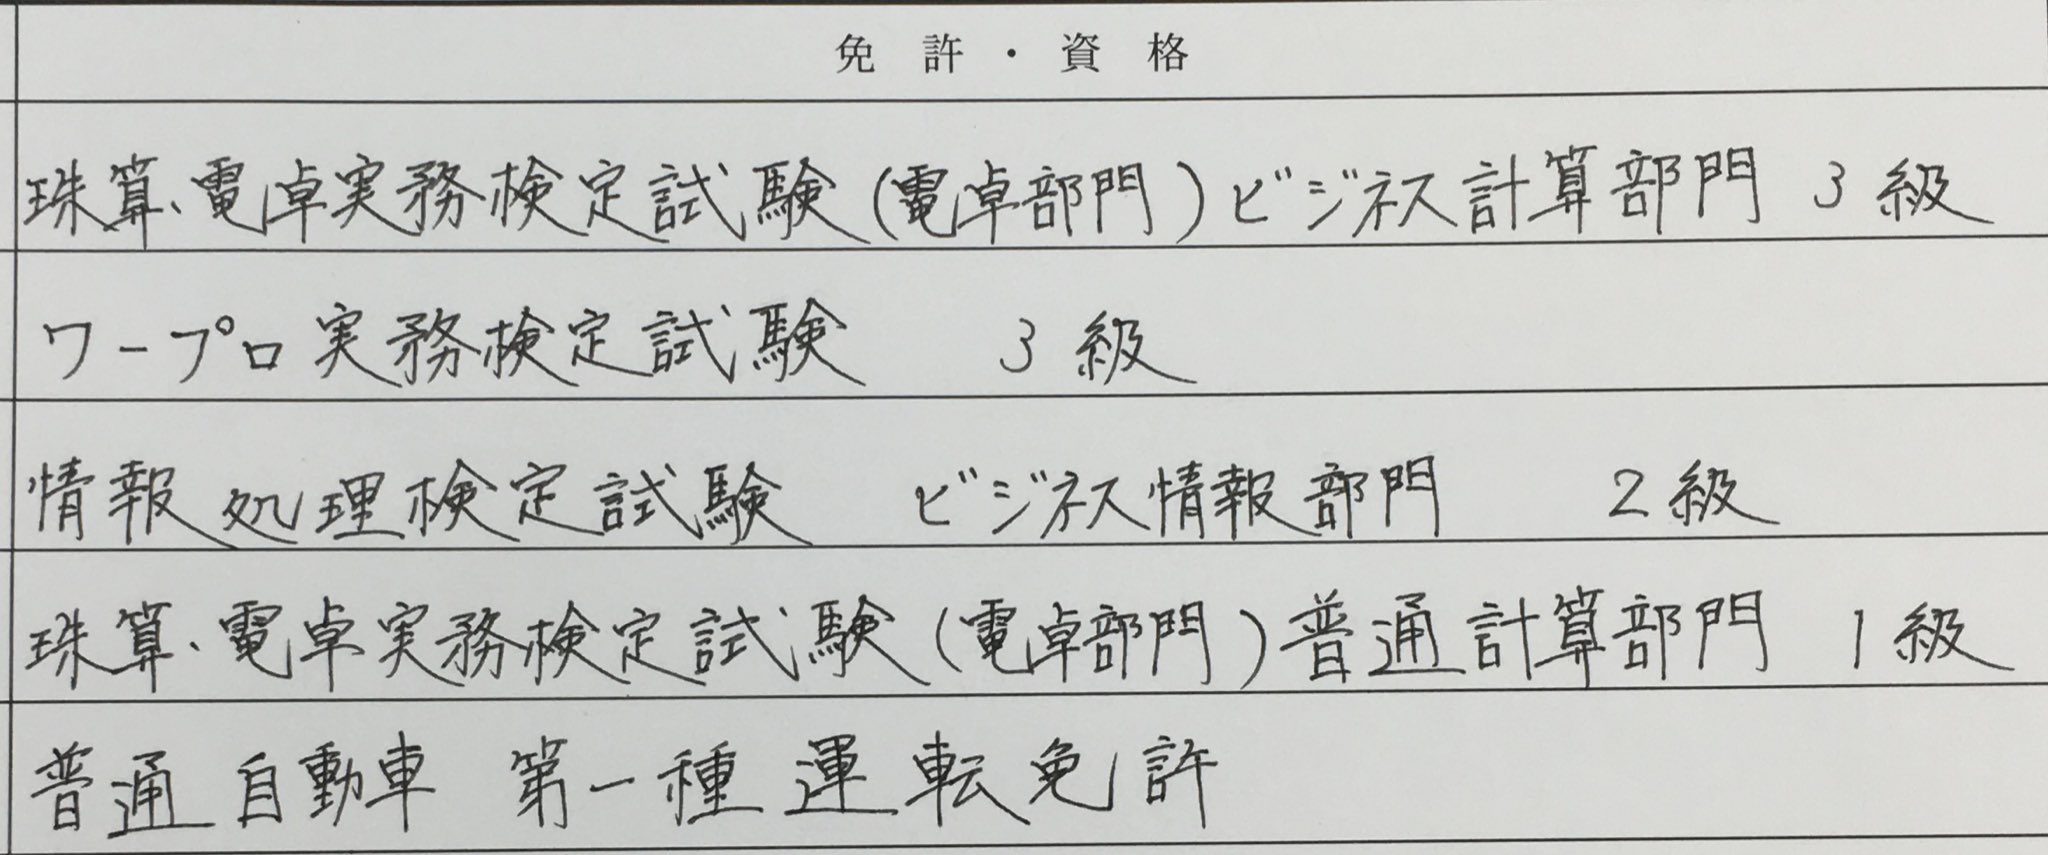 免許・資格
珠算、電卓実務検定試験(電卓部門)ビジネス計算部門 3級
ワープロ実務検定試験 3級
情報処理検定試験 ビジネス情報部門 2級
珠算、電卓実務検定試験(電卓部門)普通計算部門 1級
普通自動車 第一種運転免許